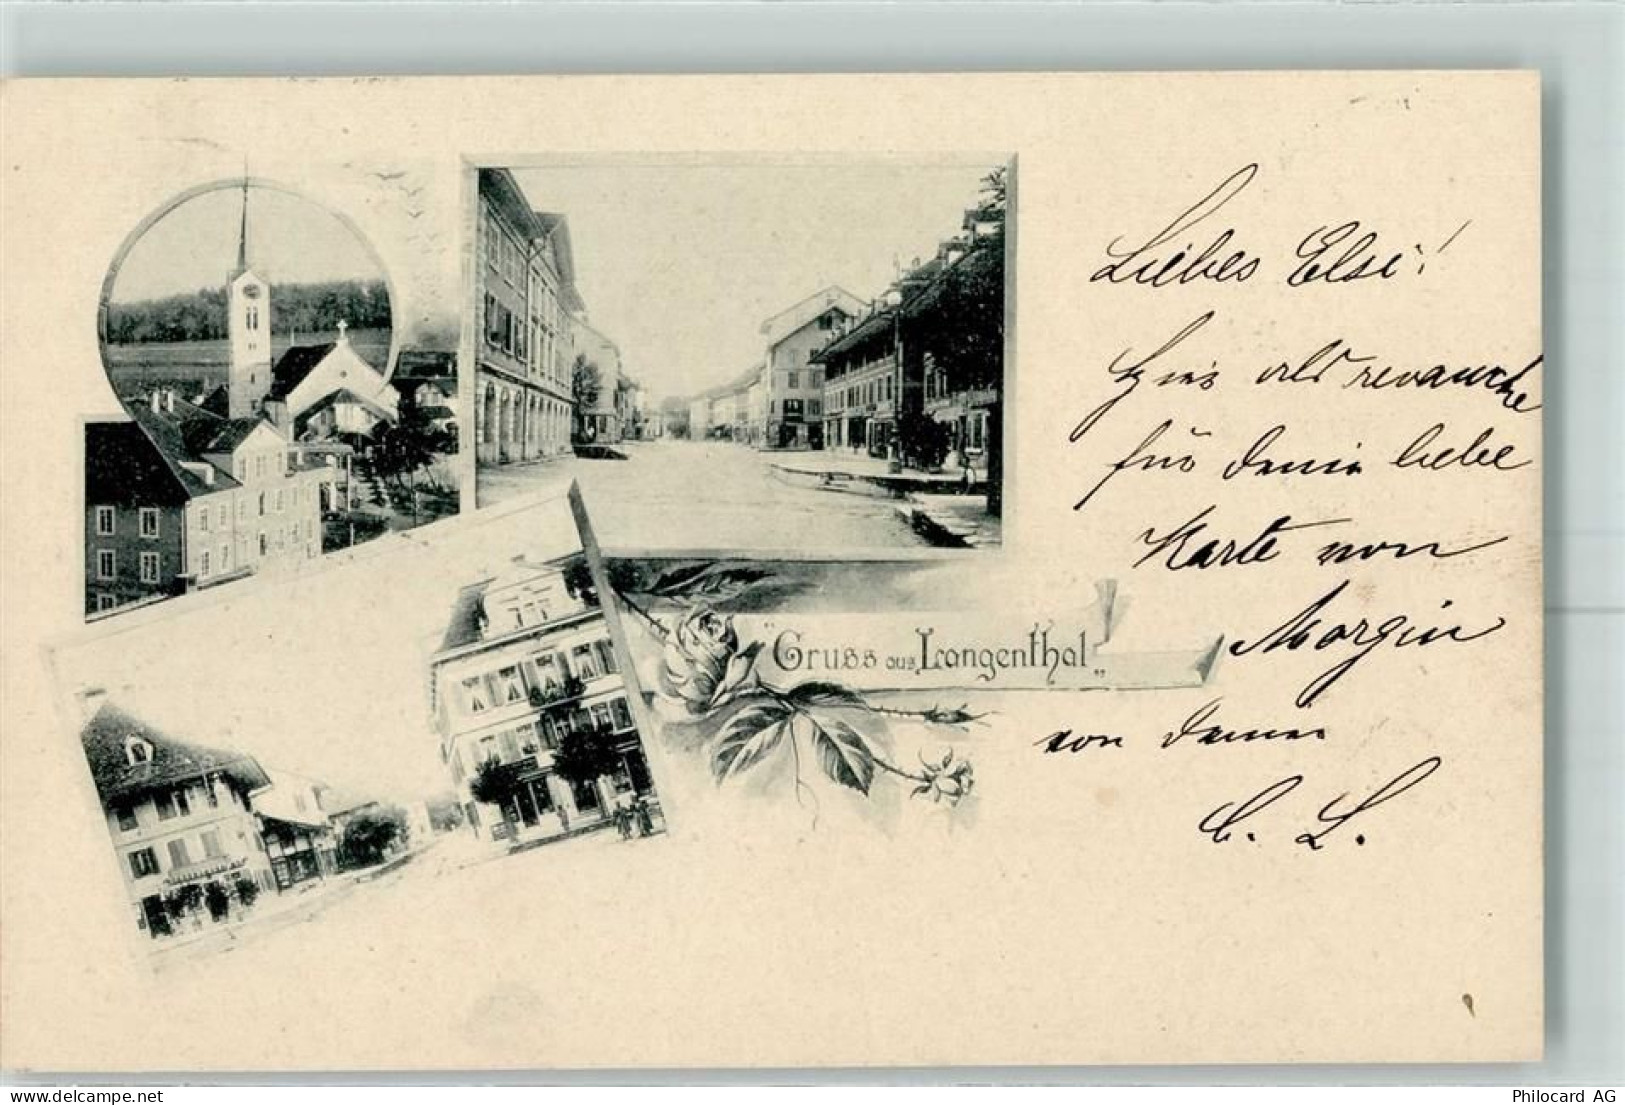 Liebes Elsi!
Hier als revanche
für Deine liebe
Karte von
Morgin
von Deiner
C. L.
"Gruss aus Langenthal"
www.delcampe.net
Philocard AG